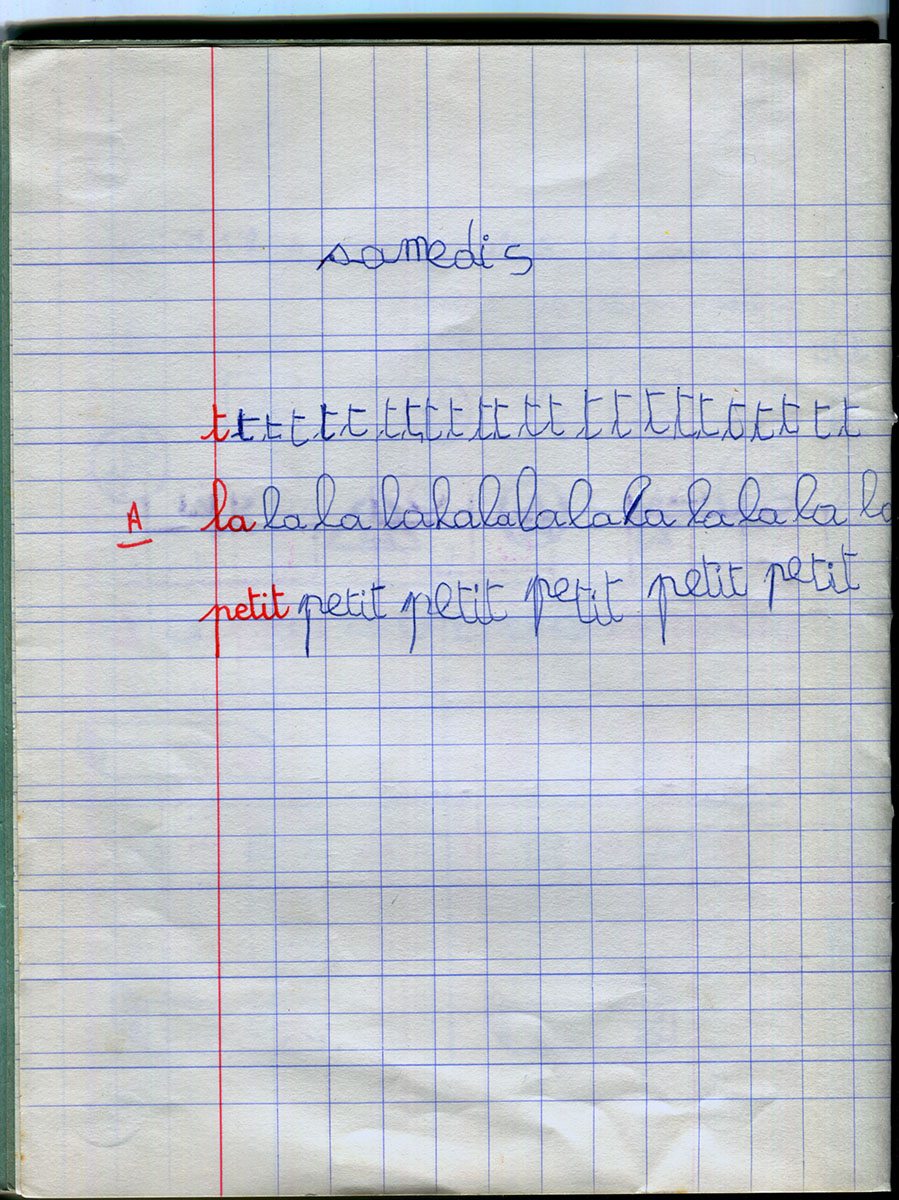 samedi 5
t t t t t t t t t t t t t t t t t t t t t t t t
A la la la la la la la la la la la la la
petit petit petit petit petit petit